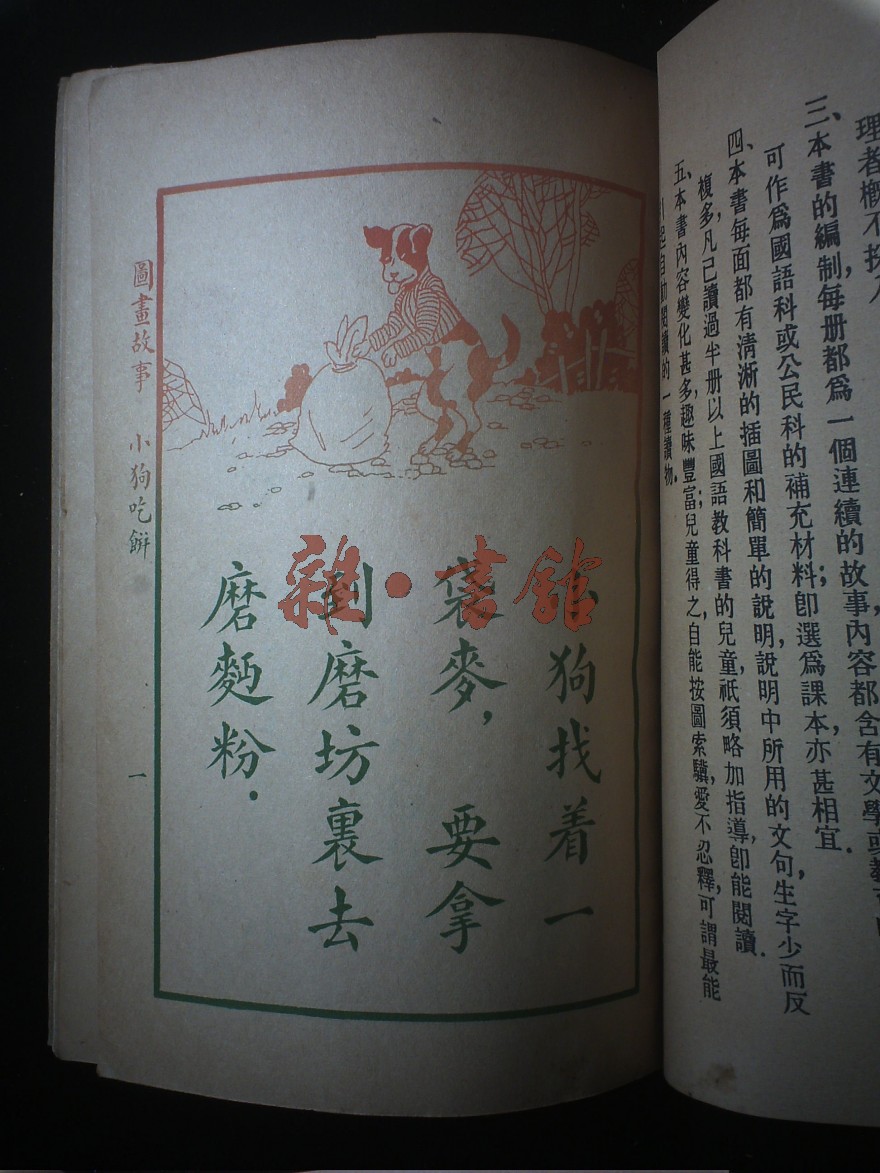 理者概不採入
三、本書的編制,每册都爲一個連續的故事,內容都含有文學或教
可作爲國語科或公民科的補充材料;卽選爲課本,亦甚相宜.
四、本書每面都有清淅的插圖和簡單的說明,說明中所用的文句,生字少而反
複多,凡已讀過半册以上國語教科書的兒童,祇須略加指導,卽能閱讀.
五、本書內容變化甚多,趣味豐富;兒童得之,自能按圖索驥,愛不忍釋,可謂最能
引起自動閱讀的一種讀物.
小狗找着一
袋麥,要拿
到磨坊裏去
磨麵粉.
圖畫故事 小狗吃餅
一
雜·書館